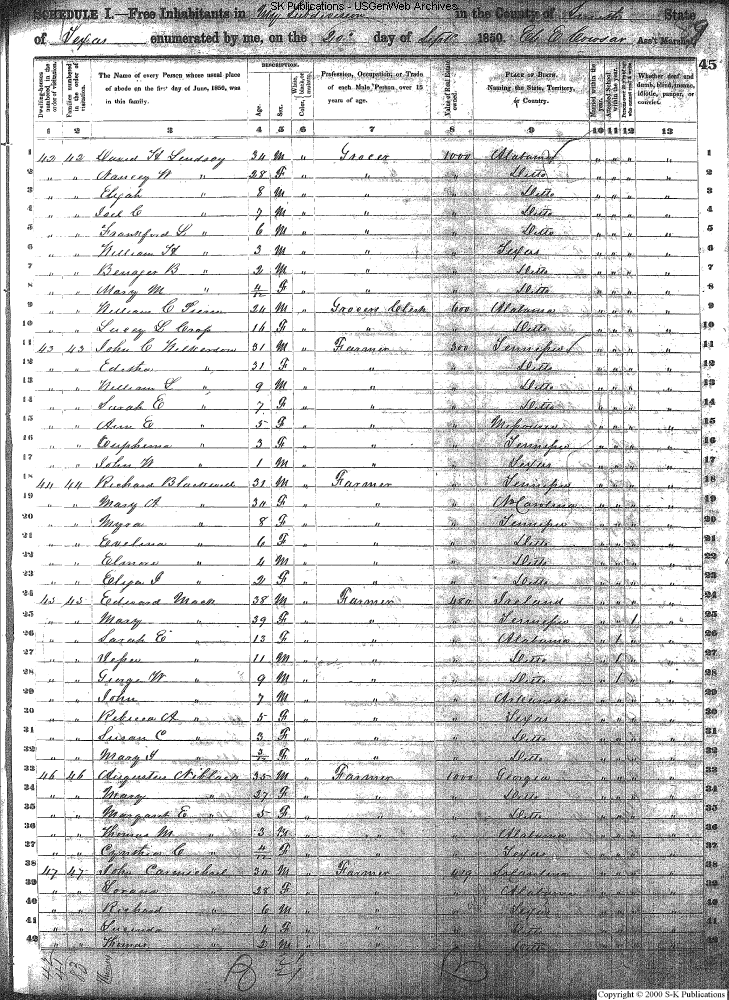 SK Publications - USGenWeb Archives
SCHEDULE I.—Free Inhabitants in Subdivision in the County of State
of Texas enumerated by me, on the 20th day of Sept. 1850. Ass't Marshal
45
DESCRIPTION.
Dwelling-houses numbered in the order of visitation.
Families numbered in the order of visitation.
The Name of every Person whose usual place of abode on the first day of June, 1850, was in this family.
Age.
Sex.
Color,
Profession, Occupation, or Trade of each Male Person over 15 years of age.
Value of Real Estate owned.
PLACE OF BIRTH. Naming the State, Territory, or Country.
Married within the year.
Attended School within the year.
Whether deaf and dumb, blind, insane, idiotic, pauper, or convict.
1 2 3 4 5 6 7 8 9 10 11 12 13
1 42 42 David H Lindsay 34 M " Grocer 1000 Alabama " " " 1
2 " " Nancy W " 28 F " " " Ditto " " " 2
3 " " Elijah " 8 M " " " Ditto " " " 3
4 " " Joel C " 7 M " " " Ditto " " " 4
5 " " Frankford L. " 6 M " " " Ditto " " " 5
6 " " William H " 3 M " " " Texas " " " 6
7 " " Benager B " 2 M " " " Ditto " " " 7
8 " " Mary M " 4/12 F " " " Ditto " " " 8
9 " " William C 24 M " Grocers Clerk 600 Alabama " " " 9
10 " " Lucy L 16 F " " " Ditto " " " 10
11 43 43 John C Wilkerson 31 M " Farmer 300 Tennessee " " " 11
12 " " Editha " 31 F " " " Ditto " " " 12
13 " " William L " 9 M " " " Ditto " " " 13
14 " " Sarah E " 7 F " " " Ditto " " " 14
15 " " Ann E " 5 F " " " " " " 15
16 " " Euphema " 3 F " " " Tennessee " " " 16
17 " " John W " 1 M " " " Texas " " " 17
18 44 44 Richard 31 M " Farmer " Tennessee " " " 18
19 " " Mary A " 30 F " " " N Carolina " " " 19
20 " " Myra " 8 F " " " Tennessee " " " 20
21 " " Evelina " 6 F " " " Ditto " " " 21
22 " " Elmore " 4 M " " " Ditto " " " 22
23 " " Eliza J " 2 F " " " Ditto " " " 23
24 45 45 Edward Mack 38 M " Farmer 400 Ireland " " " 24
25 " " Mary " 39 F " " " Tennessee " " 1 25
26 " " Sarah E " 13 F " " " Alabama " 1 " 26
27 " " " 11 M " " " Ditto " 1 " 27
28 " " George W " 9 M " " " Ditto " 1 " 28
29 " " John " 7 M " " " Arkansas " " " 29
30 " " Rebecca A " 5 F " " " Texas " " " 30
31 " " Susan C " 3 F " " " Ditto " " " 31
32 " " Mary J " 3/12 F " " " Ditto " " " 32
33 46 46 Augustus Niblack 35 M " Farmer 1000 Georgia " " " 33
34 " " Mary " 27 F " " " Ditto " " " 34
35 " " Margaret E " 5 F " " " Ditto " " " 35
36 " " Thomas M " 3 " " " Alabama " " " 36
37 " " Cynthia C " 4/12 F " " " Texas " " " 37
38 47 47 John Carmichael 30 M " Farmer " " " 38
39 " " " 28 F " " " Alabama " " " 39
40 " " Richard " 6 M " " " Texas " " " 40
41 " " Lucinda " 4 F " " " Ditto " " " 41
42 " " Thomas " 2 M " " " Ditto " " " 42
Copyright © 2000 S-K Publications